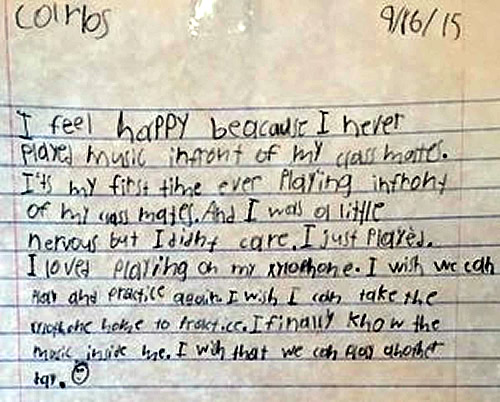 Colrbs 9/16/15
I feel happy beacause I never
Played music infront of my class mates.
I'ts my first time ever Playing infront
of my class mates. And I was a little
nervous but I didnt care. I just Played.
I loved Playing on my xylophone. I wish we can
Play and practice again. I wish I can take the
xylophone home to Practice. I finally know the
music inside me. I wish that we can Play another
day. ☺